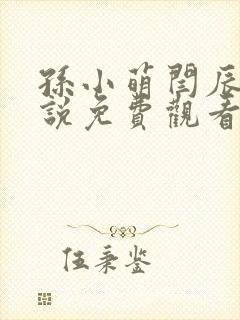 孫小萌閆辰
說免費觀看
伍秉鉴